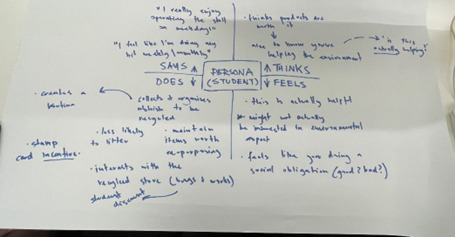 "I really enjoy
operating the stall
on weekdays"
"I feel like I'm doing my
bit weekly/monthly"
SAYS
· thinks products are
worth it
nice to know you're
helping the environment
"is this
actually helping?"
THINKS
PERSONA
(STUDENT)
DOES
· creates a
routine
collects & organises
rubbish to be
recycled
· less likely
to litter
· maintain
items worth
re-purposing
· stamp
card incentive
· interacts with the
recycled store (buys & works)
student
discount
FEELS
· this is actually helpful
might not actually
be interested in environmental
aspect
· feels like you doing a
social obligation (good? bad?)